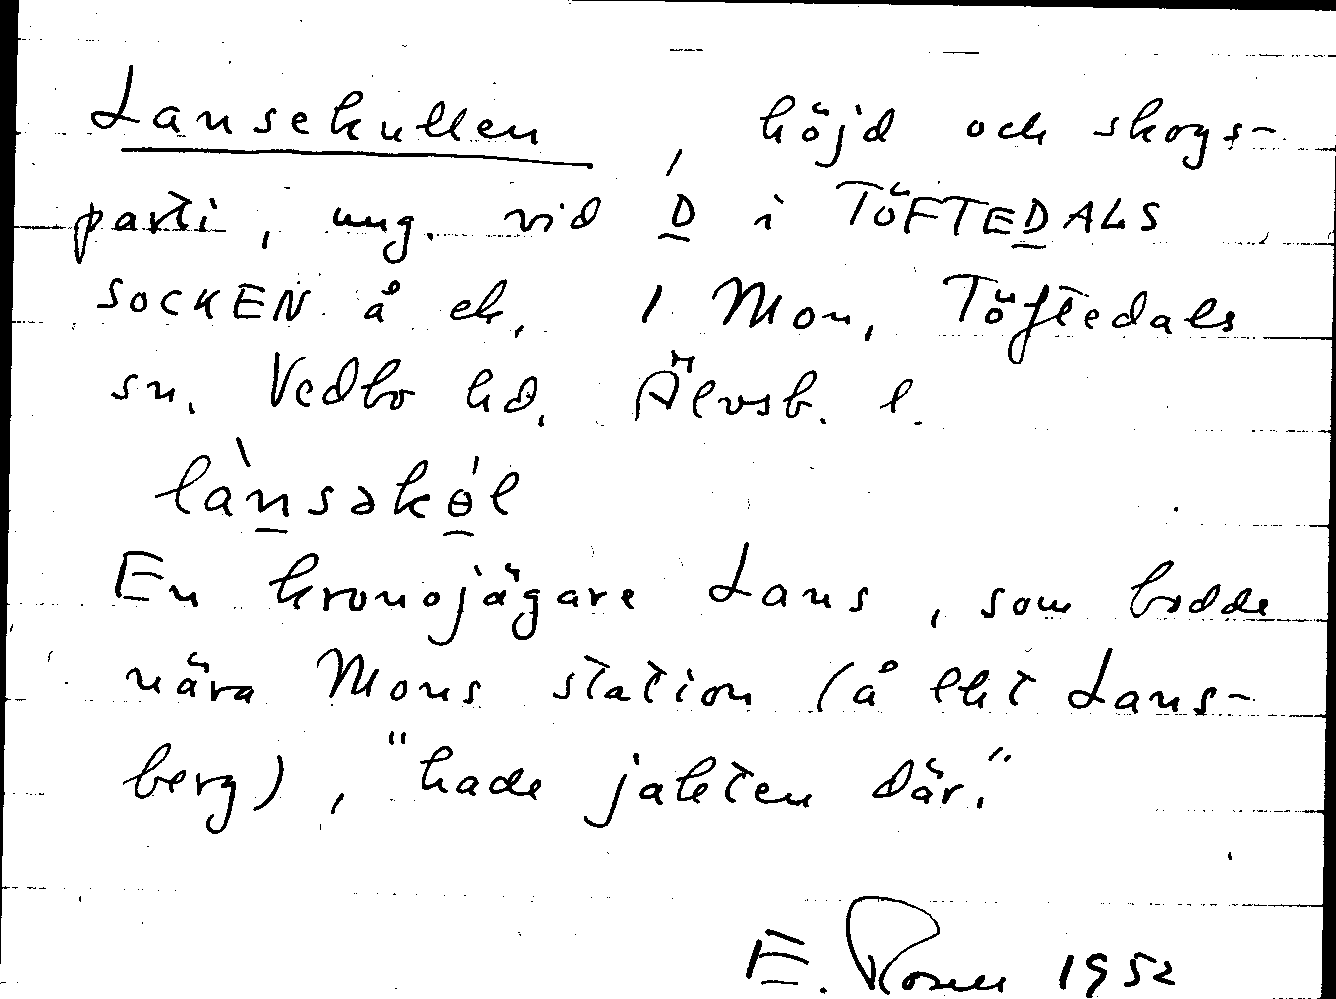 Lansekullen, höjd och skogs-
parti, ung. vid D i TÖFTEDALS
SOCKEN å ek. 1 Mon, Töftedals
sn. Vedbo hd. Älvsb. l.
lànsəkɵ́l
En kronojägare Lans, som bodde
nära Mons station (å lht Lans-
berg), "hade jakten där."
E. Rosell 1952